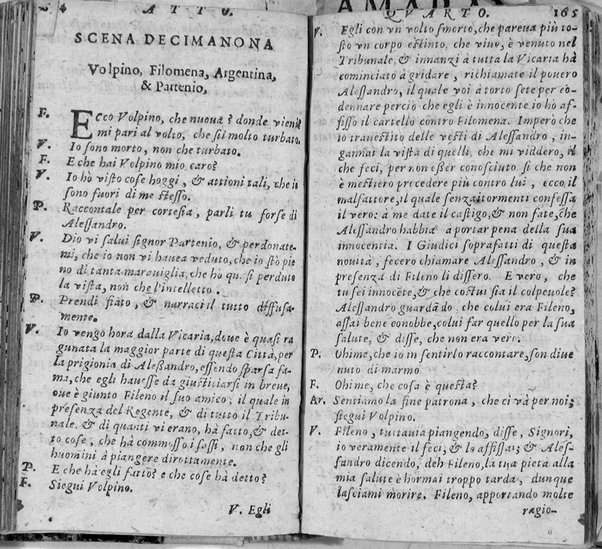 ATTO.
SCENA DECIMANONA
Volpino, Filomena, Argentina,
& Partenio,
F. Ecco Volpino, che nuoua? donde vieni
mi pari al volto, che sei molto turbato.
V. Io sono morto, non che turbato.
F. E che hai Volpino mio caro?
V. Io hò visto cose hoggi, & attioni tali, che io
sono fuori di me stesso.
P. Raccontale per cortesia, parli tu forse di
Alessandro.
V. Dio vi salui signor Partenio, & perdonate-
mi, che io non vi hauea veduto, che io stò pie
no di tanta marauiglia, che hò quasi perduto
la vista, non che l'intelletto.
P. Prendi fiato, & narraci il tutto diffusa-
mente.
V. Io vengo hora dalla Vicaria, doue è quasi ra
gunata la maggior parte di questa Città, per
la prigionia di Alessandro, essendo sparsa fa-
ma, che egli hauesse da giustitiarsi in breue,
oue è giunto Fileno il suo amico, il quale in
presenza del Regente, & di tutto il Tribu-
nale, & di quanti vi erano, hà fatto, & det-
to cose, che hà commosso i sassi, non che gli
huomini à piangere dirottamente.
P. E che hà egli fatto? e che cose hà detto?
F. Siegui Volpino.
V. Egli
QVARTO. 165
V. Egli con vn volto smorto, che pareua più to-
sto vn corpo estinto, che viuo, è venuto nel
Tribunale, & innanzi à tutta la Vicaria hà
cominciato à gridare, richiamate il pouero
Alessandro, il quale voi à torto sete per co-
dennare perciò che egli è innocente io hò af-
fisso il cartello contro Filomena. Imperò che
io trauestito delle vesti di Alessandro, in-
gannai la vista di quelli, che mi viddero, il
che feci, per non esser conosciuto si che non
è mestiero procedere più contro lui, ecco il
malfattore, il quale senza tormenti confessa
il vero: à me date il castigo, & non fate, che
Alessandro habbia à portar pena della sua
innocentia. I Giudici soprafatti di questa
nouità, fecero chiamare Alessandro, & in
presenza di Fileno li dissero. E vero, che
tu sei innocẽte, & che costui sia il colpeuole?
Alessandro guardãdo che colui era Fileno,
assai bene conobbe, colui far quello per la sua
salute, & disse, che non era vero.
P. Ohime, che io in sentirlo raccontare, son diue
nuto di marmo.
F. Ohime, che cosa è questa?
Ar. Sentiamo la fine patrona, che ci và per noi;
siegui Volpino.
V. Fileno, tuttauia piangendo, disse, Signori,
io veramente il feci, & lo affissai; & Ales-
sandro dicendo, deh Fileno, la tua pietà alla
mia salute è hormai troppo tarda, dunque
lasciami morire. Fileno, apportando molte
ragio-